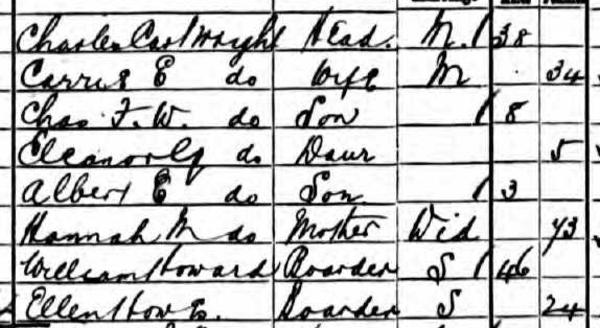 Charles Cartwright Head. M. 38
Carrie E do Wife M 34
Chas F. W. do Son 8
Eleanor do Daur 5
Albert E do Son 3
Hannah M do Mother Wid 73
William Howard Boarder S 46
Ellen Boarder S 24